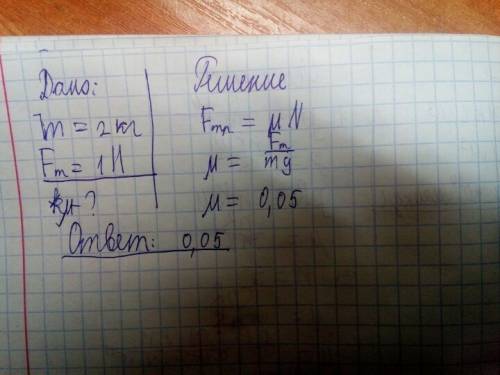 Дано:
m = 2 кг
Fт = 1 Н
μ - ?
Решение
Fтр = μN
μ = Fт/mg
μ = 0,05
Ответ: 0,05